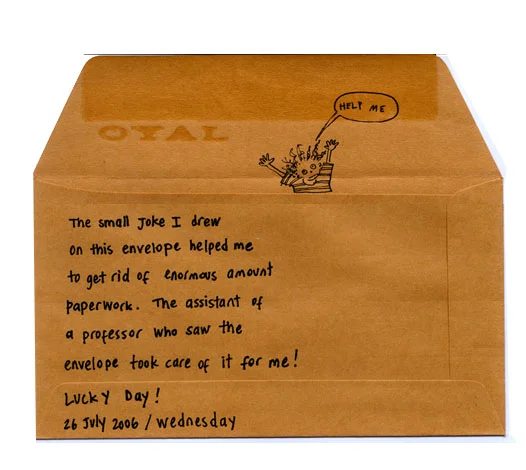 HELP ME
The small joke I drew
on this envelope helped me
to get rid of enormous amount
paperwork. The assistant of
a professor who saw the
envelope took care of it for me!
Lucky Day!
26 July 2006 / wednesday